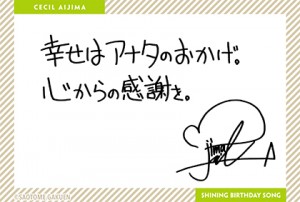 CECIL AIJIMA
幸せはアナタのおかげ。
心からの感謝を。
©SAOTOME GAKUEN
SHINING BIRTHDAY SONG